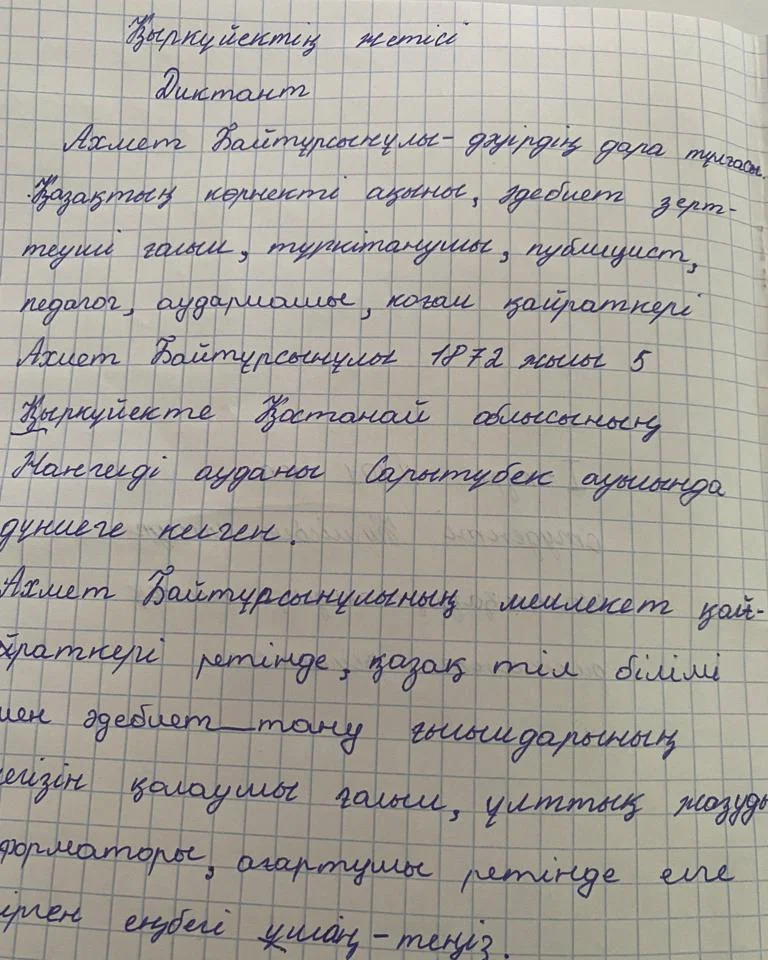 Қыркүйектің жетісі
Диктант
Ахмет Байтұрсынұлы - дәуірдің дара тұлғасы.
Қазақтың көрнекті ақыны, әдебиет зерт-
теуші ғалым, түркітанушы, публицист,
педагог, аудармашы, қоғам қайраткері
Ахмет Байтұрсынұлы 1872 жылы 5
Қыркүйекте Қостанай облысының
Нангелді ауданы Сарытүбек ауылында
дүниеге келген.
Ахмет Байтұрсынұлының мемлекет қай-
йраткері ретінде, қазақ тіл білімі
мен әдебиет_тану ғылымдарының
егізін қалаушы ғалым, ұлттық жазуды
форматоры, ағартушы ретінде елге
ірген еңбегі ұшаң - теңіз.